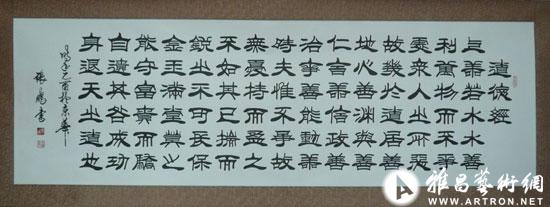 道德經
上善若水水善
利萬物而不爭
處衆人之所惡
故幾於道居善
地心善淵與善
仁言善信政善
治事善能動善
時夫唯不爭故
無憂持而盈之
不如其已揣而
銳之不可長保
金玉滿堂莫之
能守富貴而驕
自遺其咎成功
身退天之道也
書
雅昌藝術網
WWW.ARTRON.NET